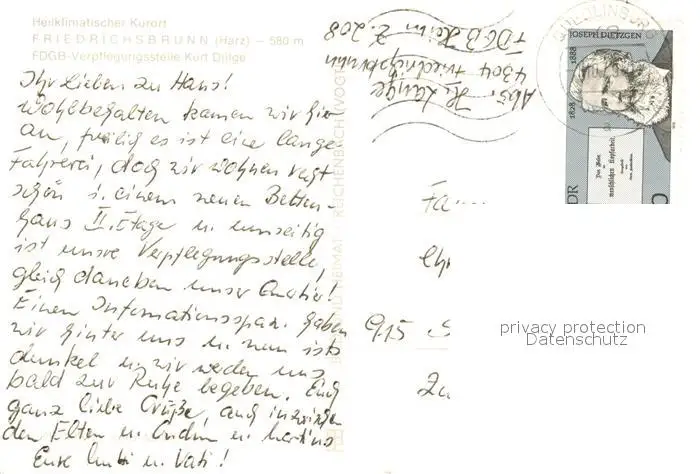 Heilklimatischer Kurort
FRIEDRICHSBRUNN (Harz) – 580 m
FDGB-Verpflegungsstelle Kurt Dillge
Ihr Lieben zu Haus!
Wohlbehalten kamen wir hier
an, freilich es ist eine lange
Fahrerei, doch wir wohnen recht
schön i. einem neuen Betten-
haus II. Etage u. umseitig
ist unsre Verpflegungsstelle,
gleich daneben unser Quartier!
Einen Informationsspaz. haben
wir hinter uns u. nun ists
dunkel u. wir werden uns
bald zur Ruhe begeben. Euch
ganz liebe Grüße, auch inzwischen
den Eltern u. u.
Eure Mutti u. Vati!
REICHENBACH (VOGTL
BILD UND HEIMAT
Abs. H. Lange
4304 Friedrichsbrunn
FDGB Heim Z. 208
QUEDLINBURG
JOSEPH DIETZGEN
1828 1888
Das Wesen
der
menschlichen Kopfarbeit.
DDR
0
Fa
915
privacy protection
Datenschutz